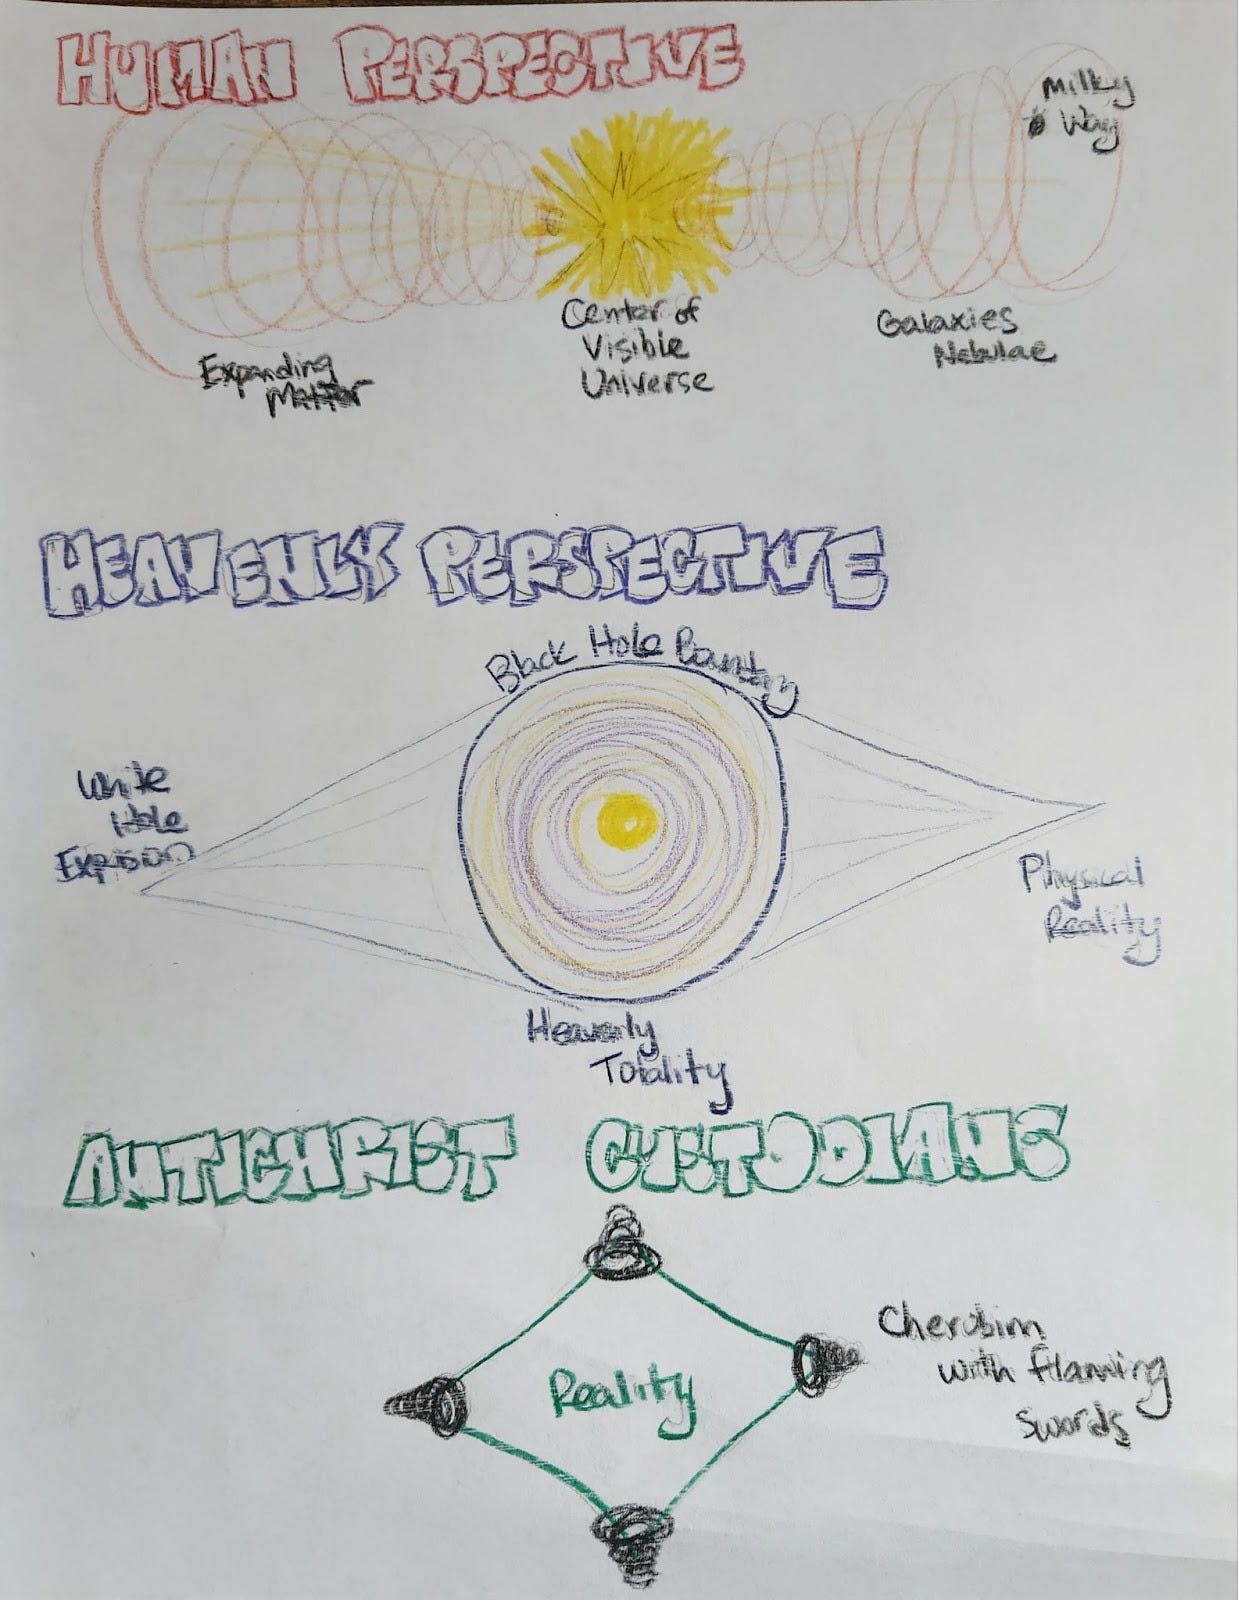 HUMAN PERSPECTIVE
Milky
Way
Center of
Visible
Universe
Galaxies
Nebulae
Expanding
Matter
HEAVENLY PERSPECTIVE
Black Hole
White
Hole
Physical
Reality
Heavenly
Totality
ANTICHRIST CUSTODIANS
Reality
Cherubim
with flaming
swords